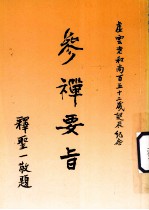 虛雲老和尚百五十二歲誕辰紀念
參禪要旨
釋聖一敬題